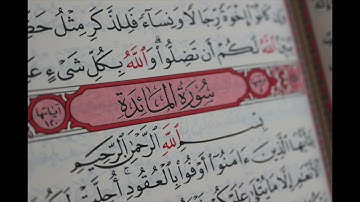 كَانُوٓا۟ إِخْوَةً رِّجَالًا وَنِسَآءً فَلِلذَّكَرِ مِثْلُ
ٱللَّهُ لَكُمْ أَن تَضِلُّوا۟ ۗ وَٱللَّهُ بِكُلِّ شَىْءٍ
سُورَةُ المَائِدَة
آيَاتُهَا ١٢٠
بِسْمِ ٱللَّهِ ٱلرَّحْمَٰنِ ٱلرَّحِيمِ
يَٰٓأَيُّهَا ٱلَّذِينَ ءَامَنُوٓا۟ أَوْفُوا۟ بِٱلْعُقُودِ ۚ أُحِلَّتْ
ٱلْأَنْعَٰمِ إِلَّا مَا يُتْلَىٰ عَلَيْكُمْ